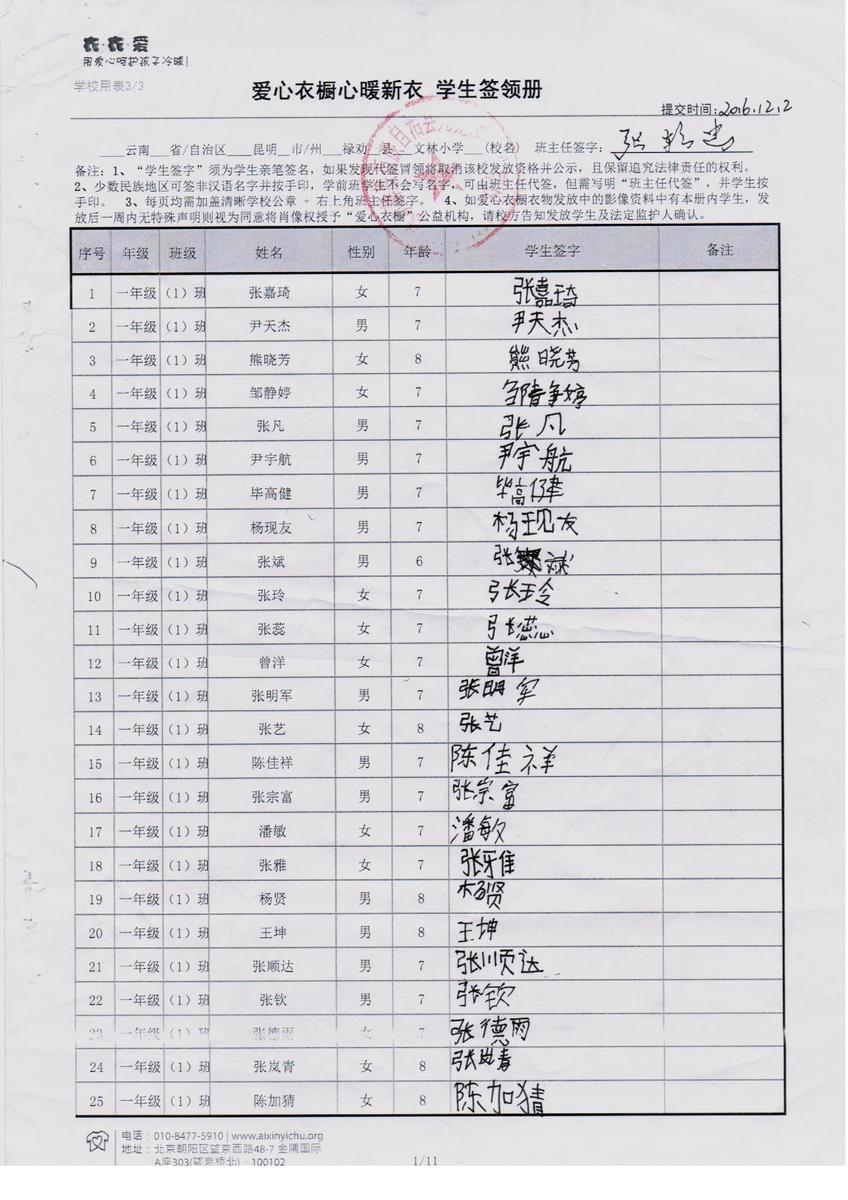 衣·衣·爱
用爱心呵护孩子冷暖!
学校用表3/3
爱心衣橱心暖新衣 学生签领册
提交时间:2016.12.2
云南 省/自治区 昆明 市/州 禄劝 县 文林小学 (校名) 班主任签字:
备注：1、“学生签字”须为学生亲笔签名，如果发现代签冒领将取消该校发放资格并公示，且保留追究法律责任的权利。
2、少数民族地区可签非汉语名字并按手印，学前班学生不会写名字，可由班主任代签，但需写明“班主任代签”，并学生按
手印。 3、每页均需加盖清晰学校公章 + 右上角班主任签字。 4、如爱心衣橱衣物发放中的影像资料中有本册内学生，发
放后一周内无特殊声明则视为同意将肖像权授予“爱心衣橱”公益机构，请校方告知发放学生及法定监护人确认。
序号 年级 班级 姓名 性别 年龄 学生签字 备注
1 一年级 （1）班 张嘉琦 女 7 张嘉琦
2 一年级 （1）班 尹天杰 男 7 尹天杰
3 一年级 （1）班 熊晓芳 女 8 熊晓芳
4 一年级 （1）班 邹静婷 女 7 邹静婷
5 一年级 （1）班 张凡 男 7 张凡
6 一年级 （1）班 尹宇航 男 7 尹宇航
7 一年级 （1）班 毕高健 男 7 毕高健
8 一年级 （1）班 杨现友 男 7 杨现友
9 一年级 （1）班 张斌 男 6 张斌
10 一年级 （1）班 张玲 女 7 张玲
11 一年级 （1）班 张蕊 女 7 张蕊
12 一年级 （1）班 曾洋 女 7 曾洋
13 一年级 （1）班 张明军 男 7 张明军
14 一年级 （1）班 张艺 女 8 张艺
15 一年级 （1）班 陈佳祥 男 7 陈佳祥
16 一年级 （1）班 张宗富 男 7 张宗富
17 一年级 （1）班 潘敏 女 7 潘敏
18 一年级 （1）班 张雅 女 7 张雅
19 一年级 （1）班 杨贤 男 8 杨贤
20 一年级 （1）班 王坤 男 8 王坤
21 一年级 （1）班 张顺达 男 7 张顺达
22 一年级 （1）班 张钦 男 7 张钦
23 一年级 （1）班 张德雨 女 7 张德雨
24 一年级 （1）班 张岚青 女 8 张岚青
25 一年级 （1）班 陈加猜 女 8 陈加猜
电话：010-8477-5910 | www.aixinyichu.org
地址：北京朝阳区望京西路48-7 金隅国际
A座303(望京桥北) · 100102
1/11